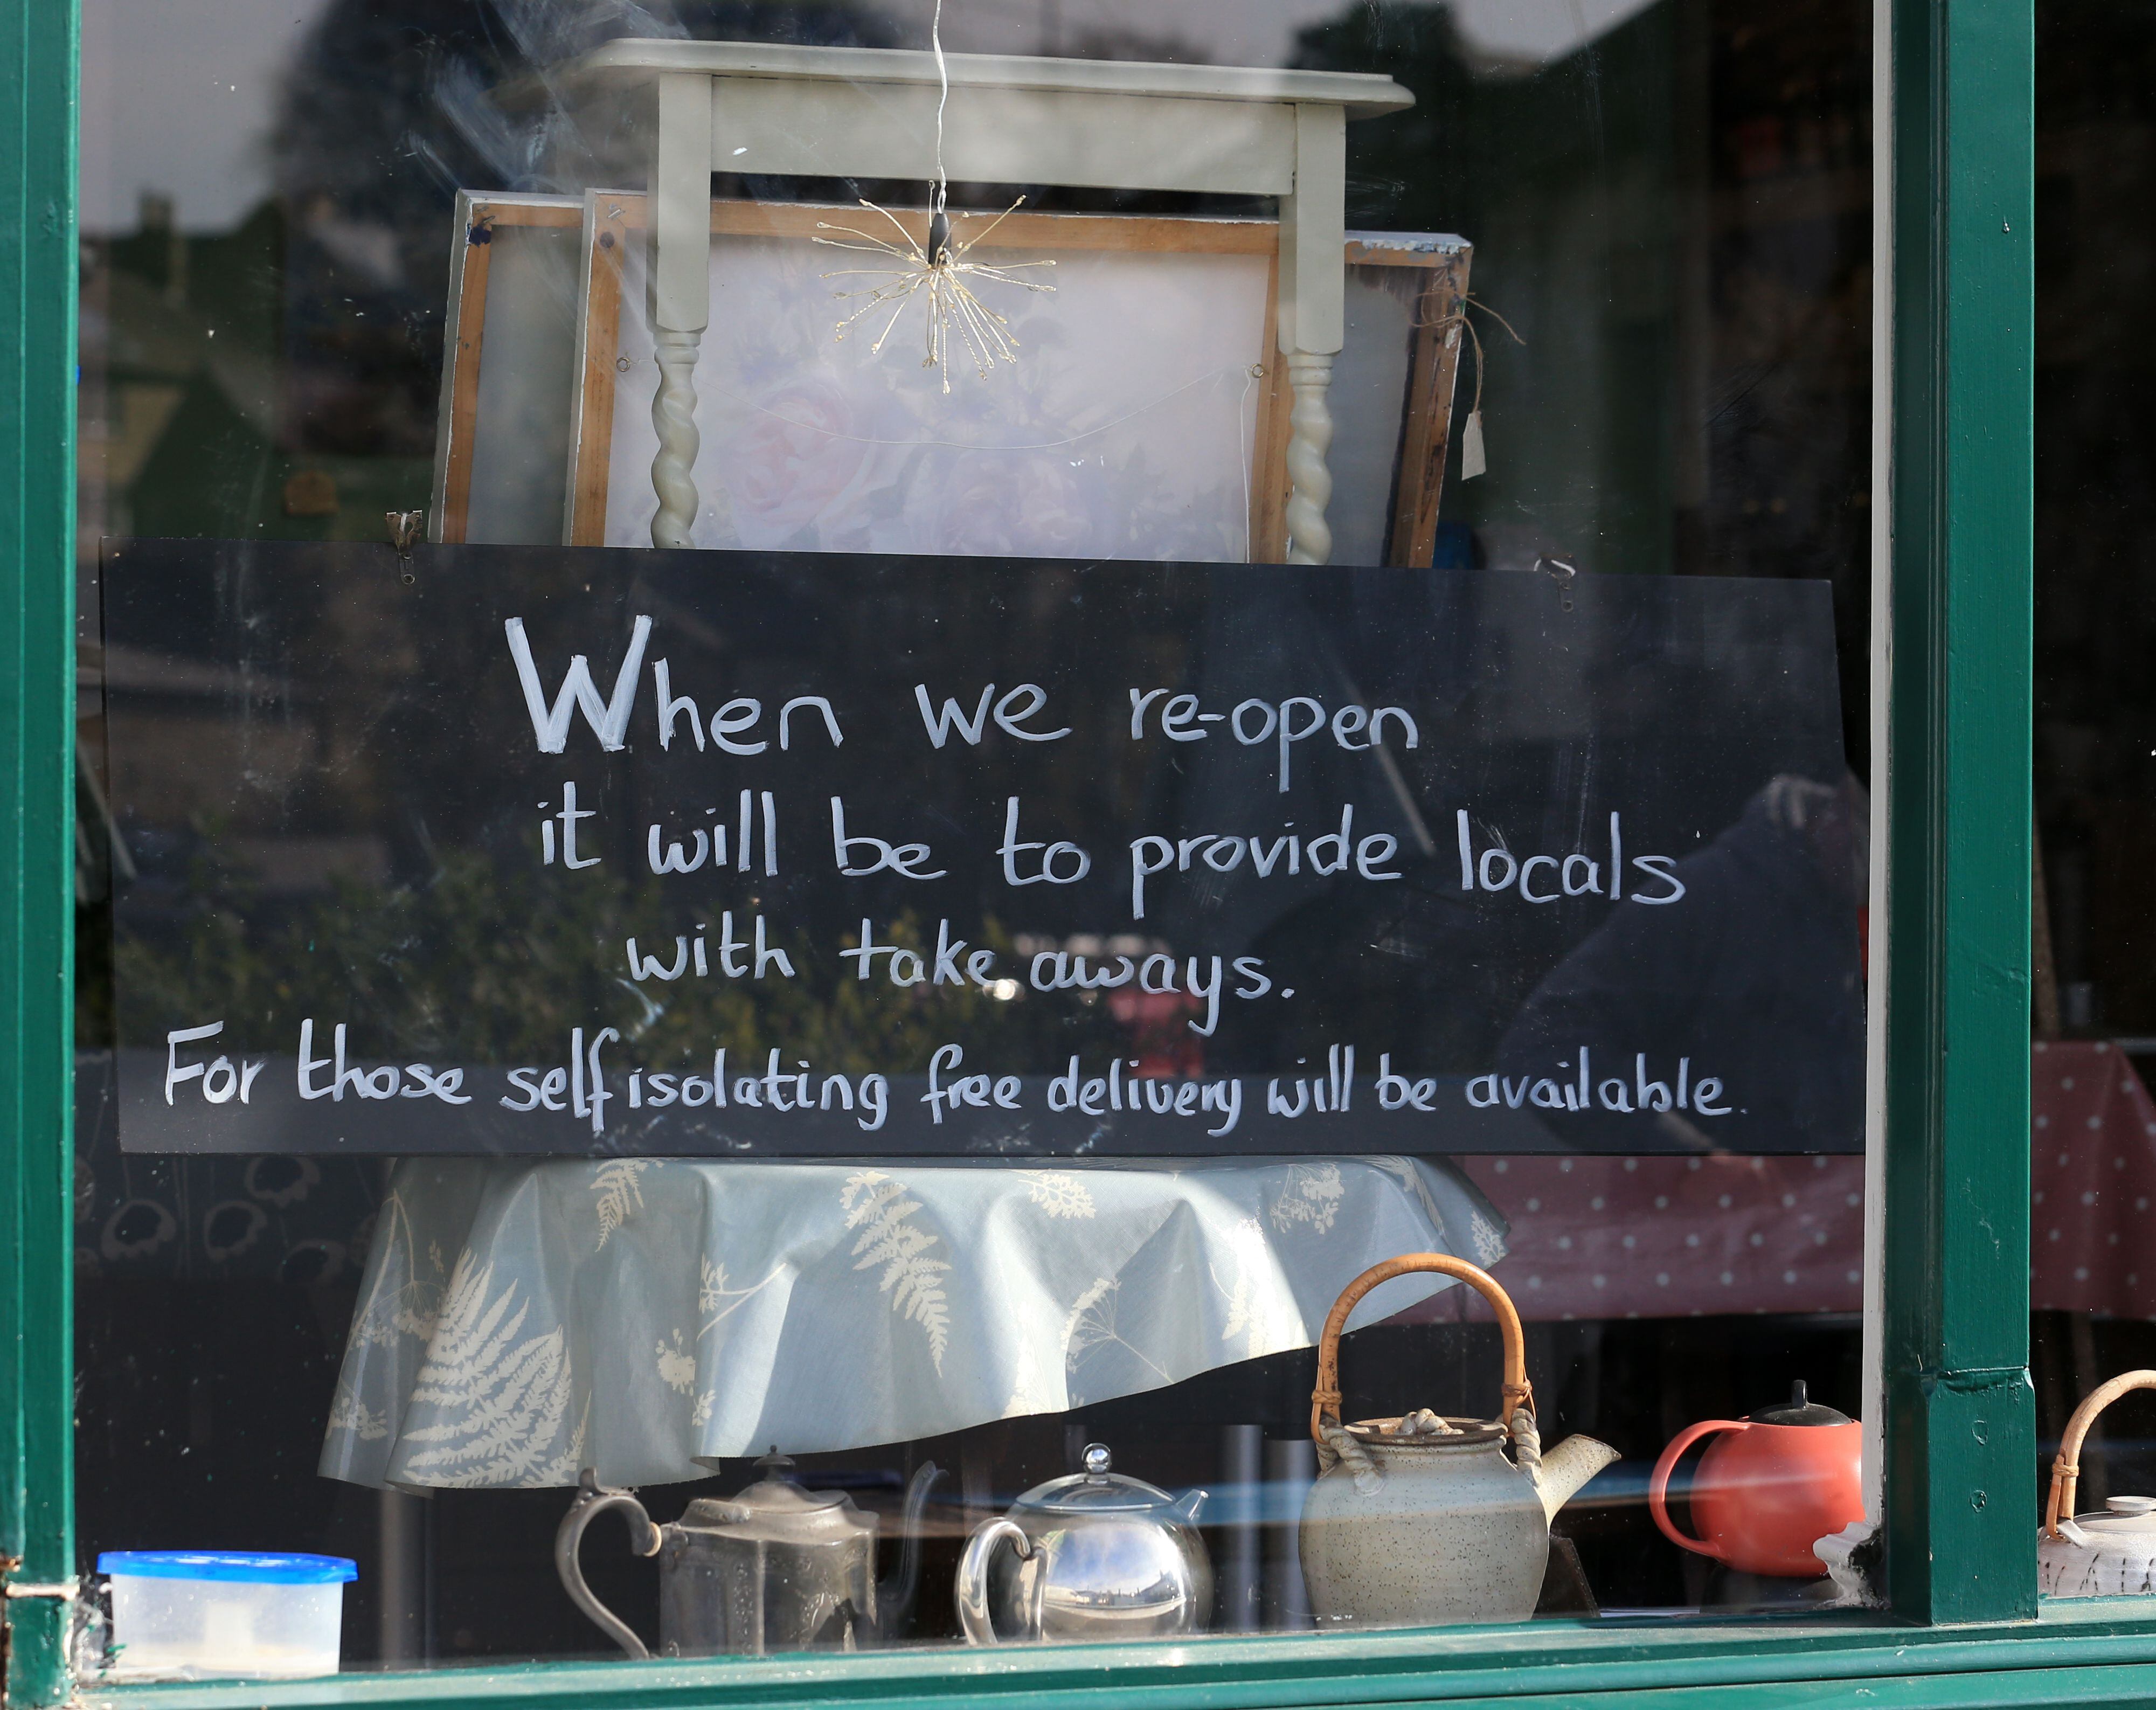 When we re-open
it will be to provide locals
with take aways.
For those self isolating free delivery will be available.